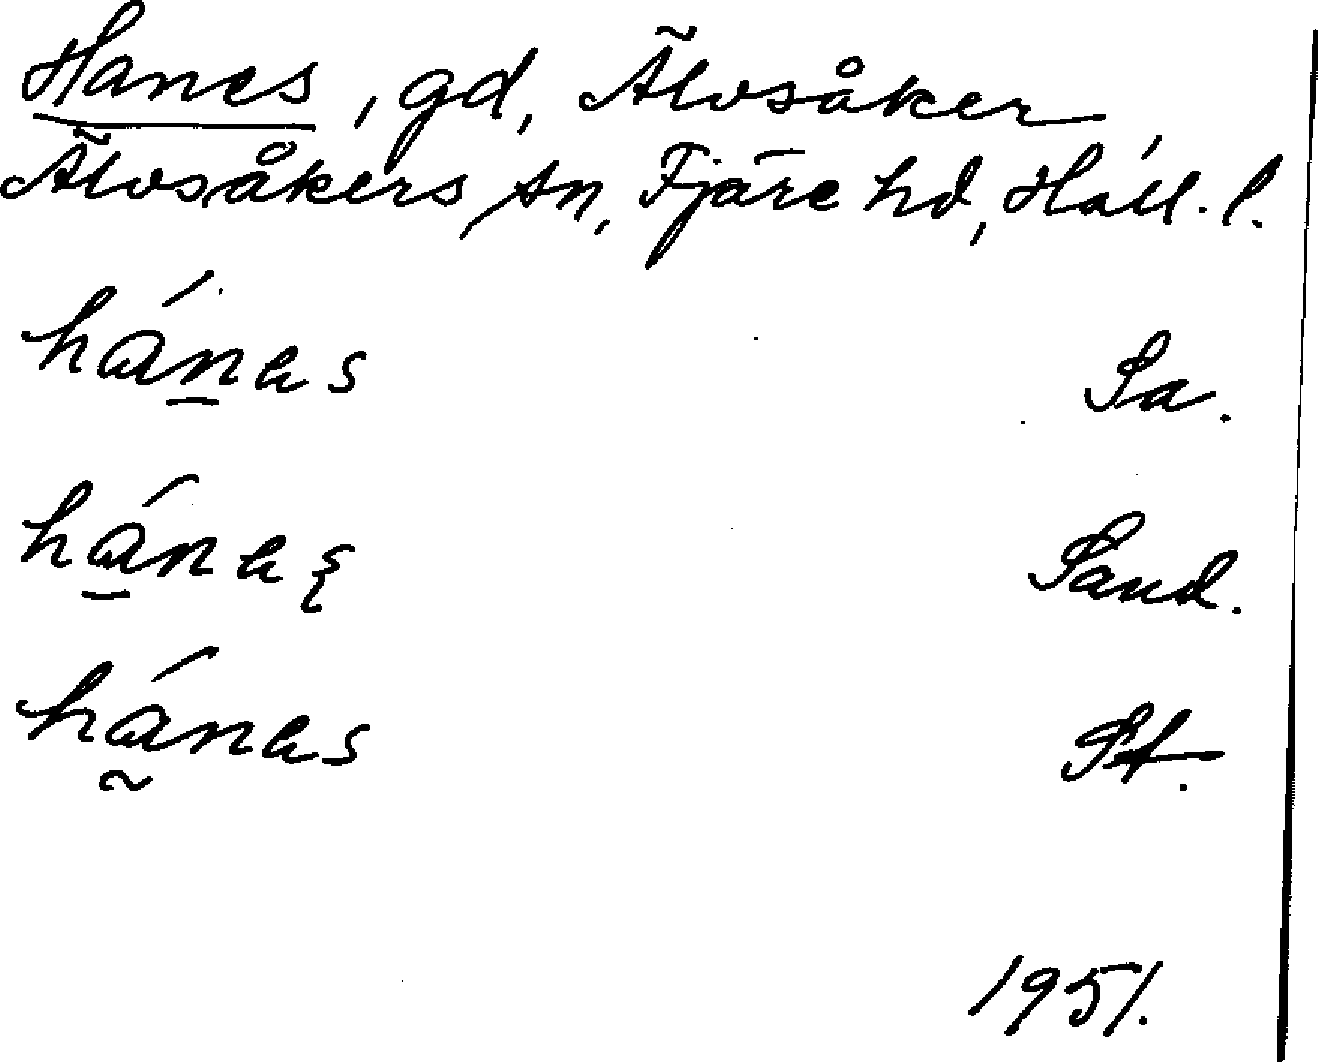 Hanes, gd, Älvsåker,
Älvsåkers sn, Fjäre hd, Hall. l.
hánas Sa.
hánas Sand.
hánas St.
1951.